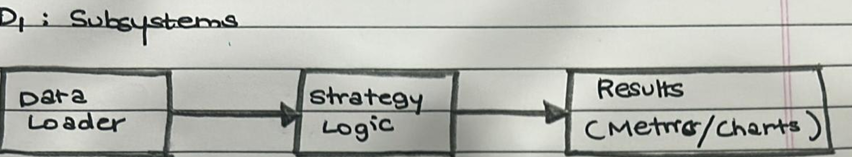 D1 : Subsystems
Data
Loader
Strategy
Logic
Results
(Metrics/Charts)